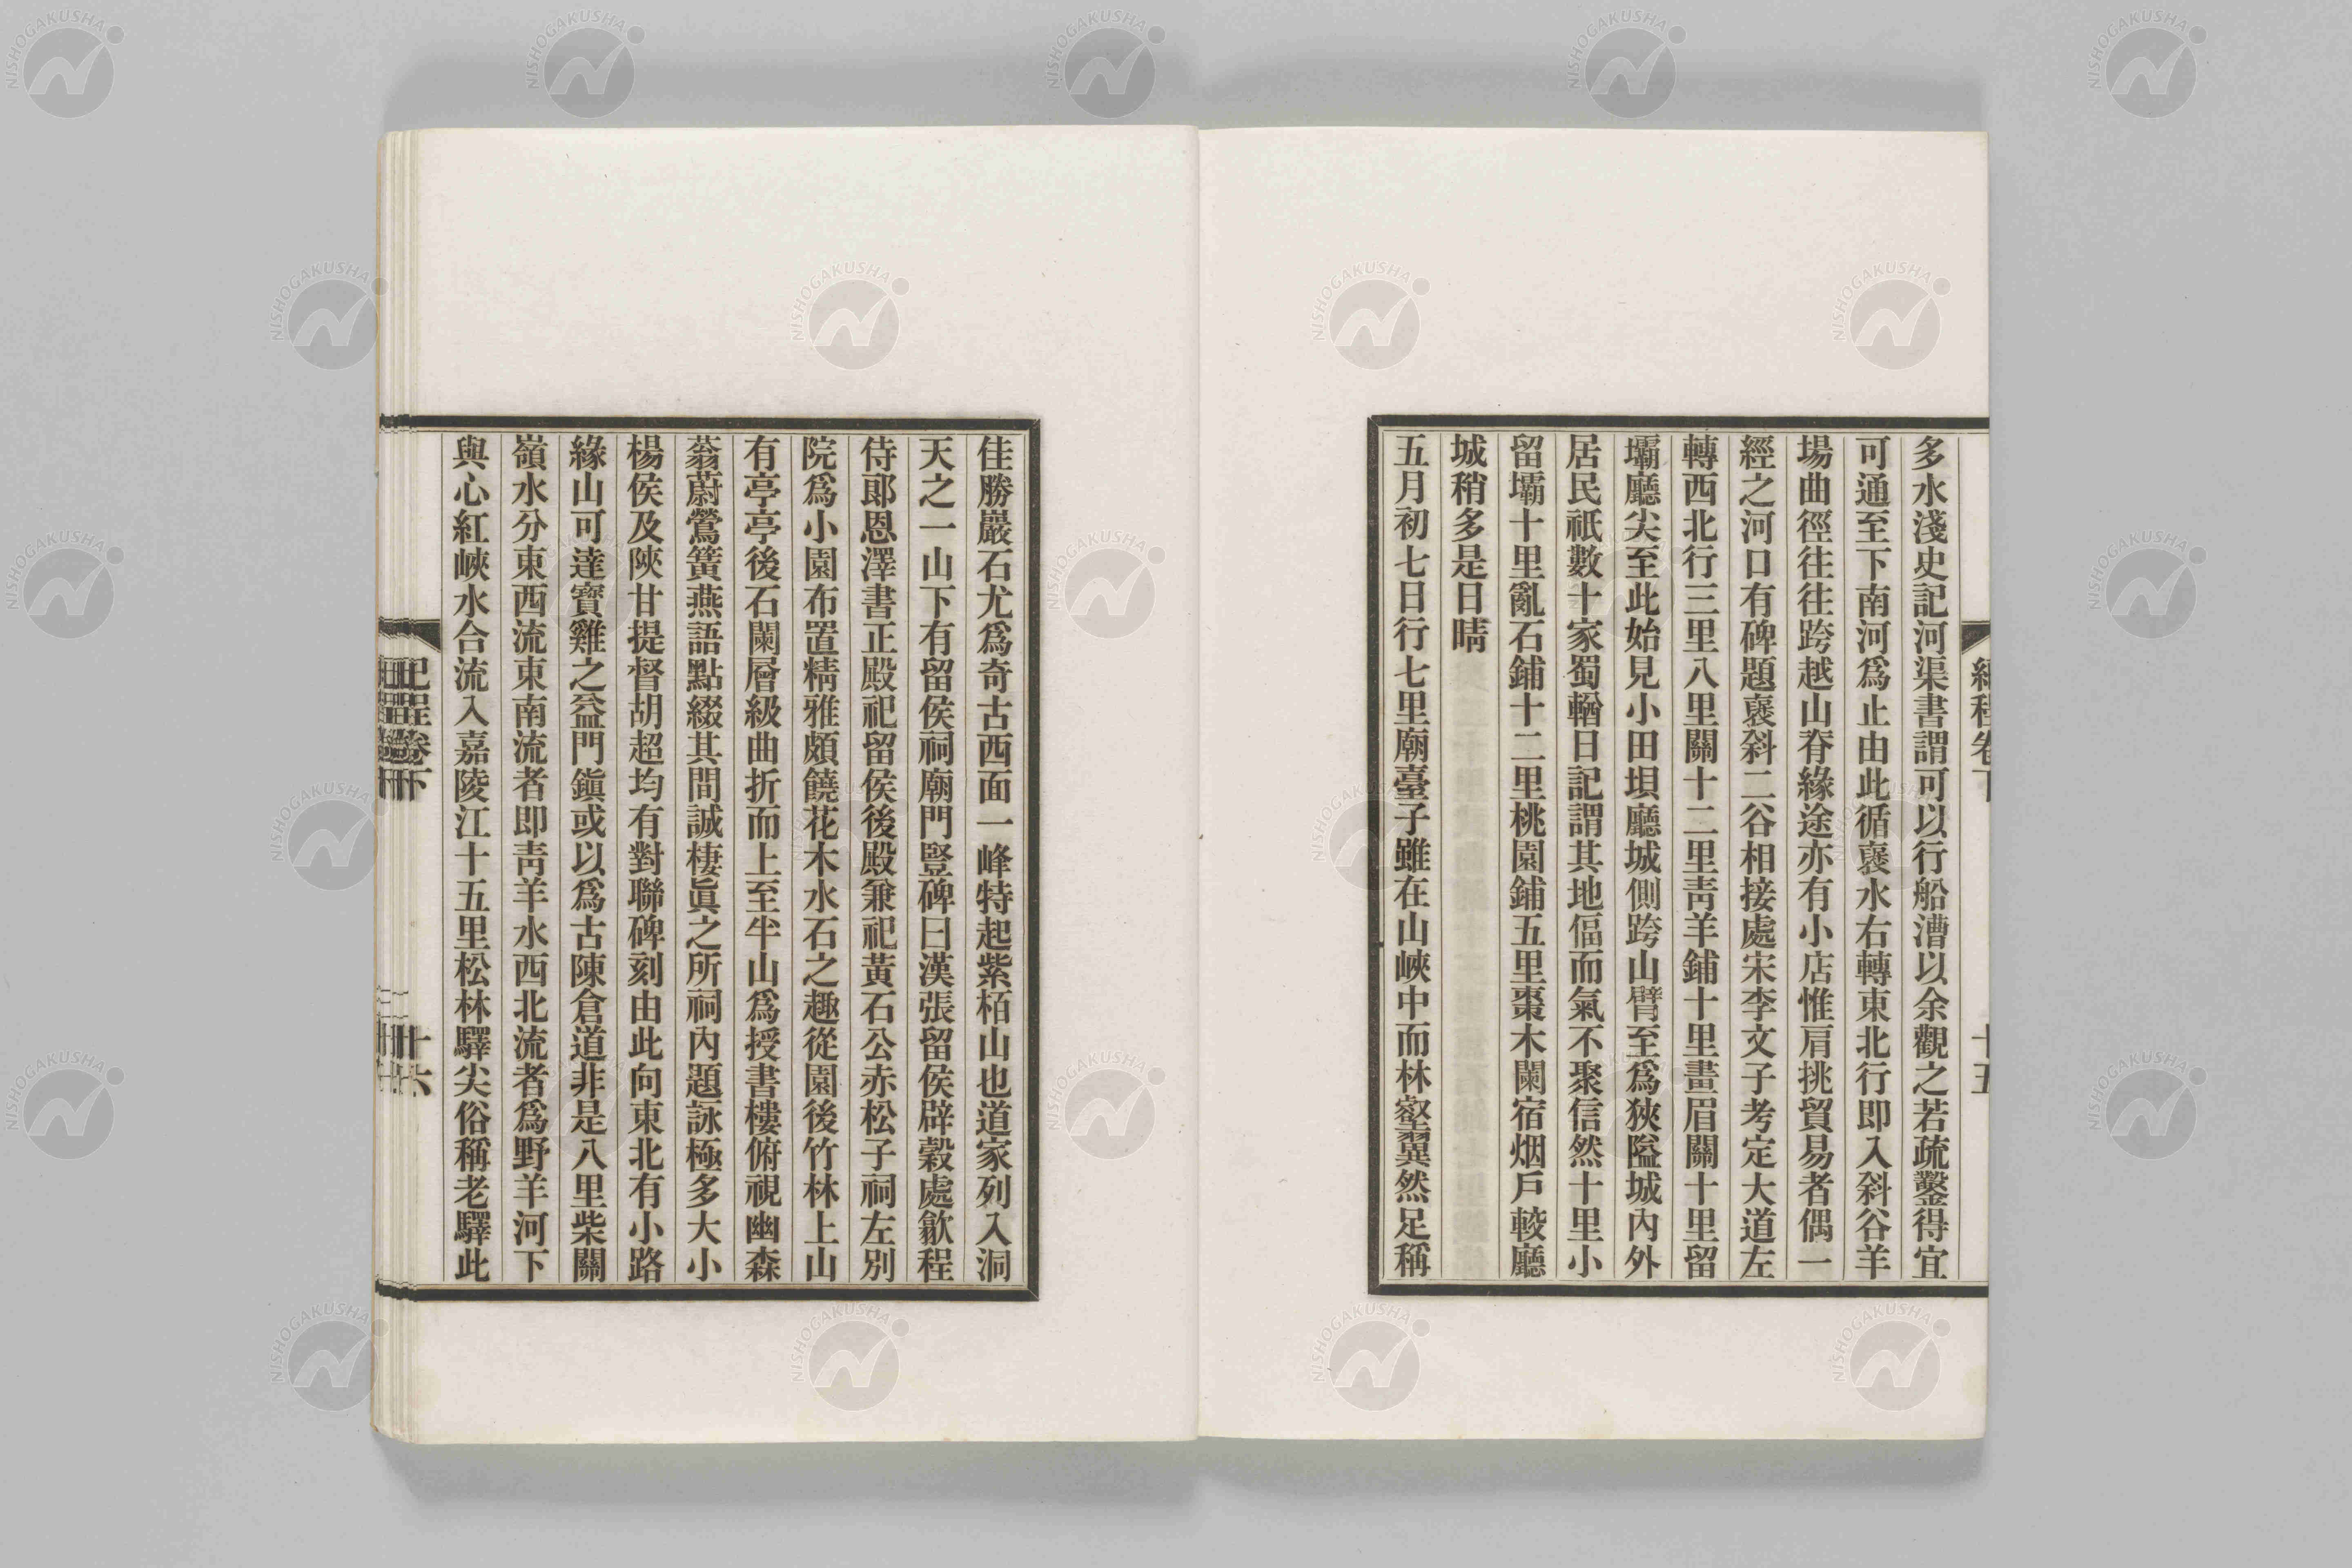 多水淺史記河渠書謂可以行船漕以余觀之若疏鑿得宜
可通至下南河爲止由此循襃水右轉東北行即入斜谷羊
場曲徑往往跨越山脊緣途亦有小店惟肩挑貿易者偶一
經之河口有碑題襃斜二谷相接處宋李文子考定大道左
轉西北行三里八里關十二里靑羊鋪十里畫眉關十里留
壩廳尖至此始見小田垻廳城側跨山臂至爲狹隘城內外
居民祇數十家蜀輶日記謂其地偪而氣不聚信然十里小
留壩十里亂石鋪十二里桃園鋪五里棗木闌宿烟戶較廳
城稍多是日晴
五月初七日行七里廟臺子雖在山峽中而林壑翼然足稱
佳勝巖石尤爲奇古西面一峰特起紫栢山也道家列入洞
天之一山下有留侯祠廟門豎碑曰漢張留侯辟穀處歙程
侍郎恩澤書正殿祀留侯後殿兼祀黃石公赤松子祠左別
院爲小園布置精雅頗饒花木水石之趣從園後竹林上山
有亭亭後石闌層級曲折而上至半山爲授書樓俯視幽森
蓊蔚鶯簧燕語點綴其間誠棲眞之所祠內題詠極多大小
楊侯及陝甘提督胡超均有對聯碑刻由此向東北有小路
緣山可達寶雞之益門鎭或以爲古陳倉道非是八里柴關
嶺水分東西流東南流者即靑羊水西北流者爲野羊河下
與心紅峽水合流入嘉陵江十五里松林驛尖俗稱老驛此
紀程卷下
十六
NISHOGAKUSHA